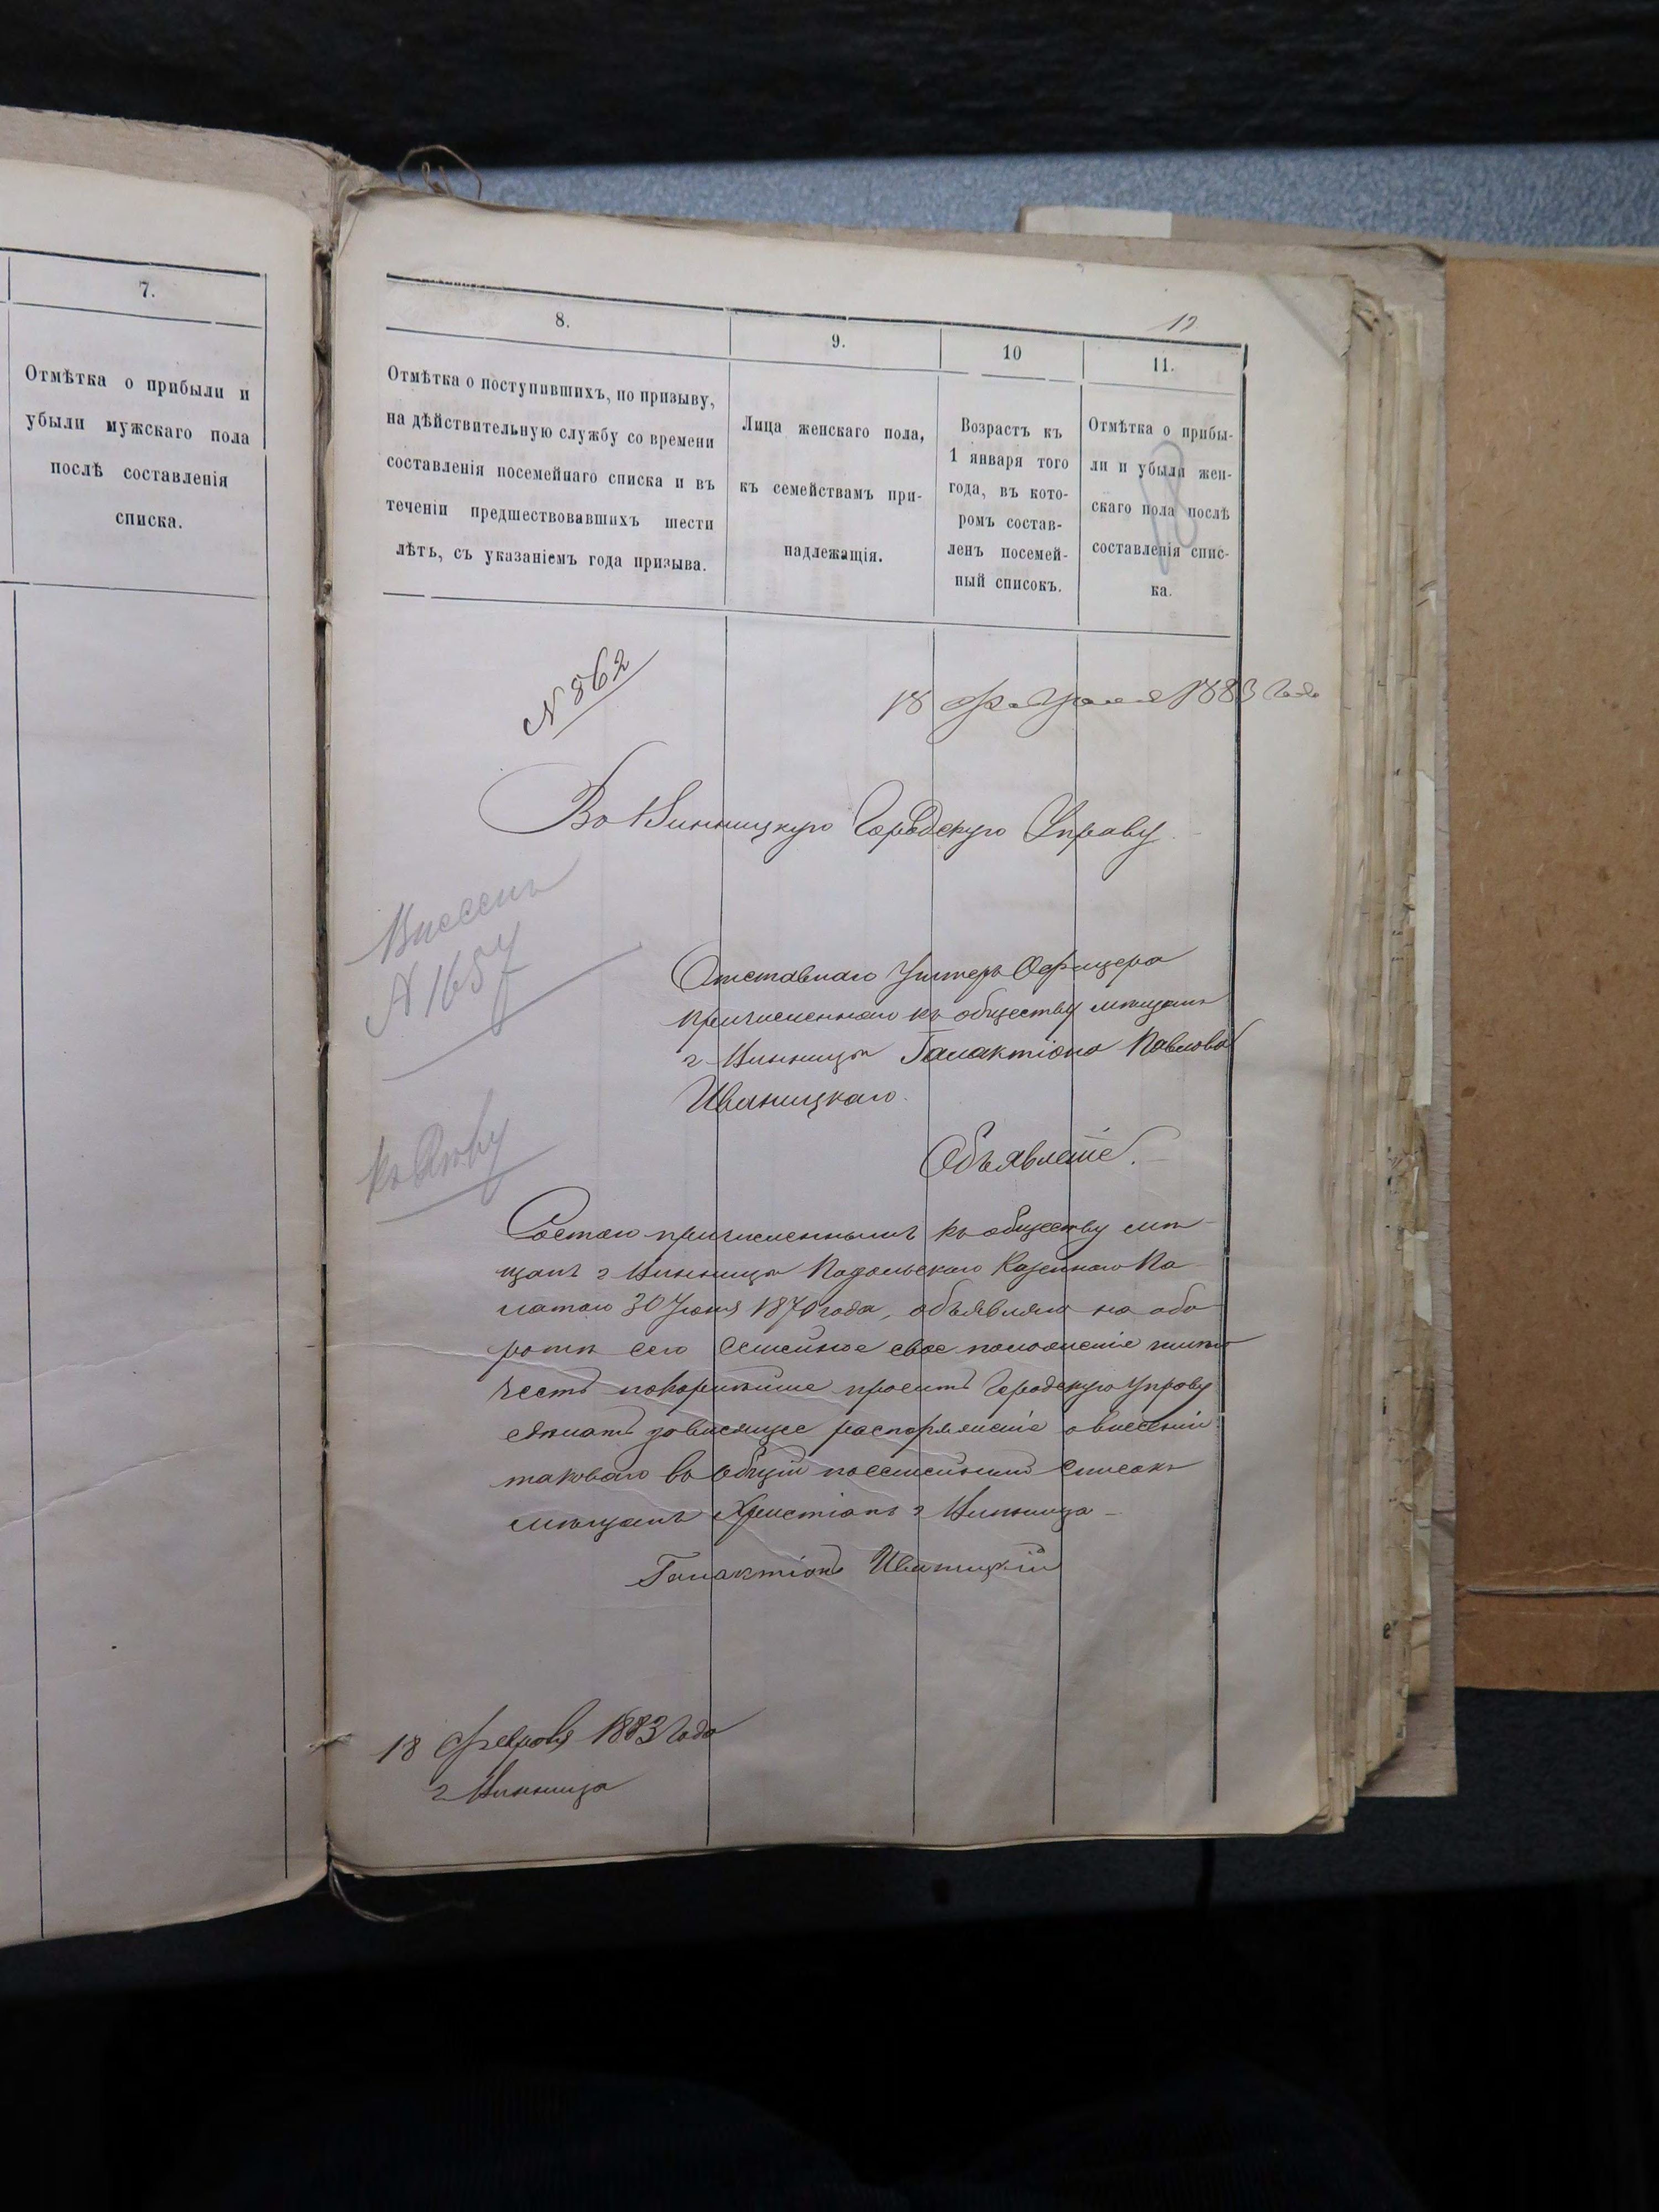 7.
Отмѣтка о прибыли и
убыли мужскаго пола
послѣ составленія
списка.
12
8.
Отмѣтка о поступившихъ, по призыву,
на дѣйствительную службу со времени
составленія посемейнаго списка и въ
теченіи предшествовавшихъ шести
лѣтъ, съ указаніемъ года призыва.
9.
Лица женскаго пола,
къ семействамъ при-
надлежащія.
10
Возрастъ къ
1 января того
года, въ кото-
ромъ состав-
ленъ посемей-
ный списокъ.
11.
Отмѣтка о прибы-
ли и убыли жен-
скаго пола послѣ
составленія спис-
ка.
N 862
18 Февраля 1883 года
Въ Винницкую Городскую Управу
Внесенъ
N 1657
Отставнаго Унтеръ Офицера
причисленнаго къ обществу мѣщанъ
г Винницы Галактіона Павлова
Иваницкаго
къ дѣлу
Объявленіе.
Состою причисленнымъ къ обществу мѣ-
щанъ г Винницы Подольскаго Казенною Па-
латою 30 Іюня 1870 года, объявляя на обо-
ротѣ сего Семейное свое положеніе имѣю
честь покорнѣйше просить Городскую Управу
сдѣлать зависящее распоряженіе о внесеніи
таковаго въ общій посемейный списокъ
мѣщанъ Христіанъ г Винница
Галактіонъ Иваницкій
18 Февраля 1883 года
г Винница